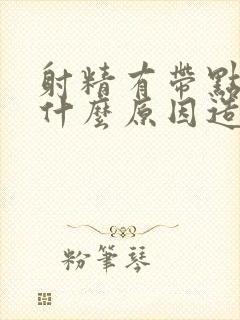 射精有帶點
什麼原因造
粉筆琴